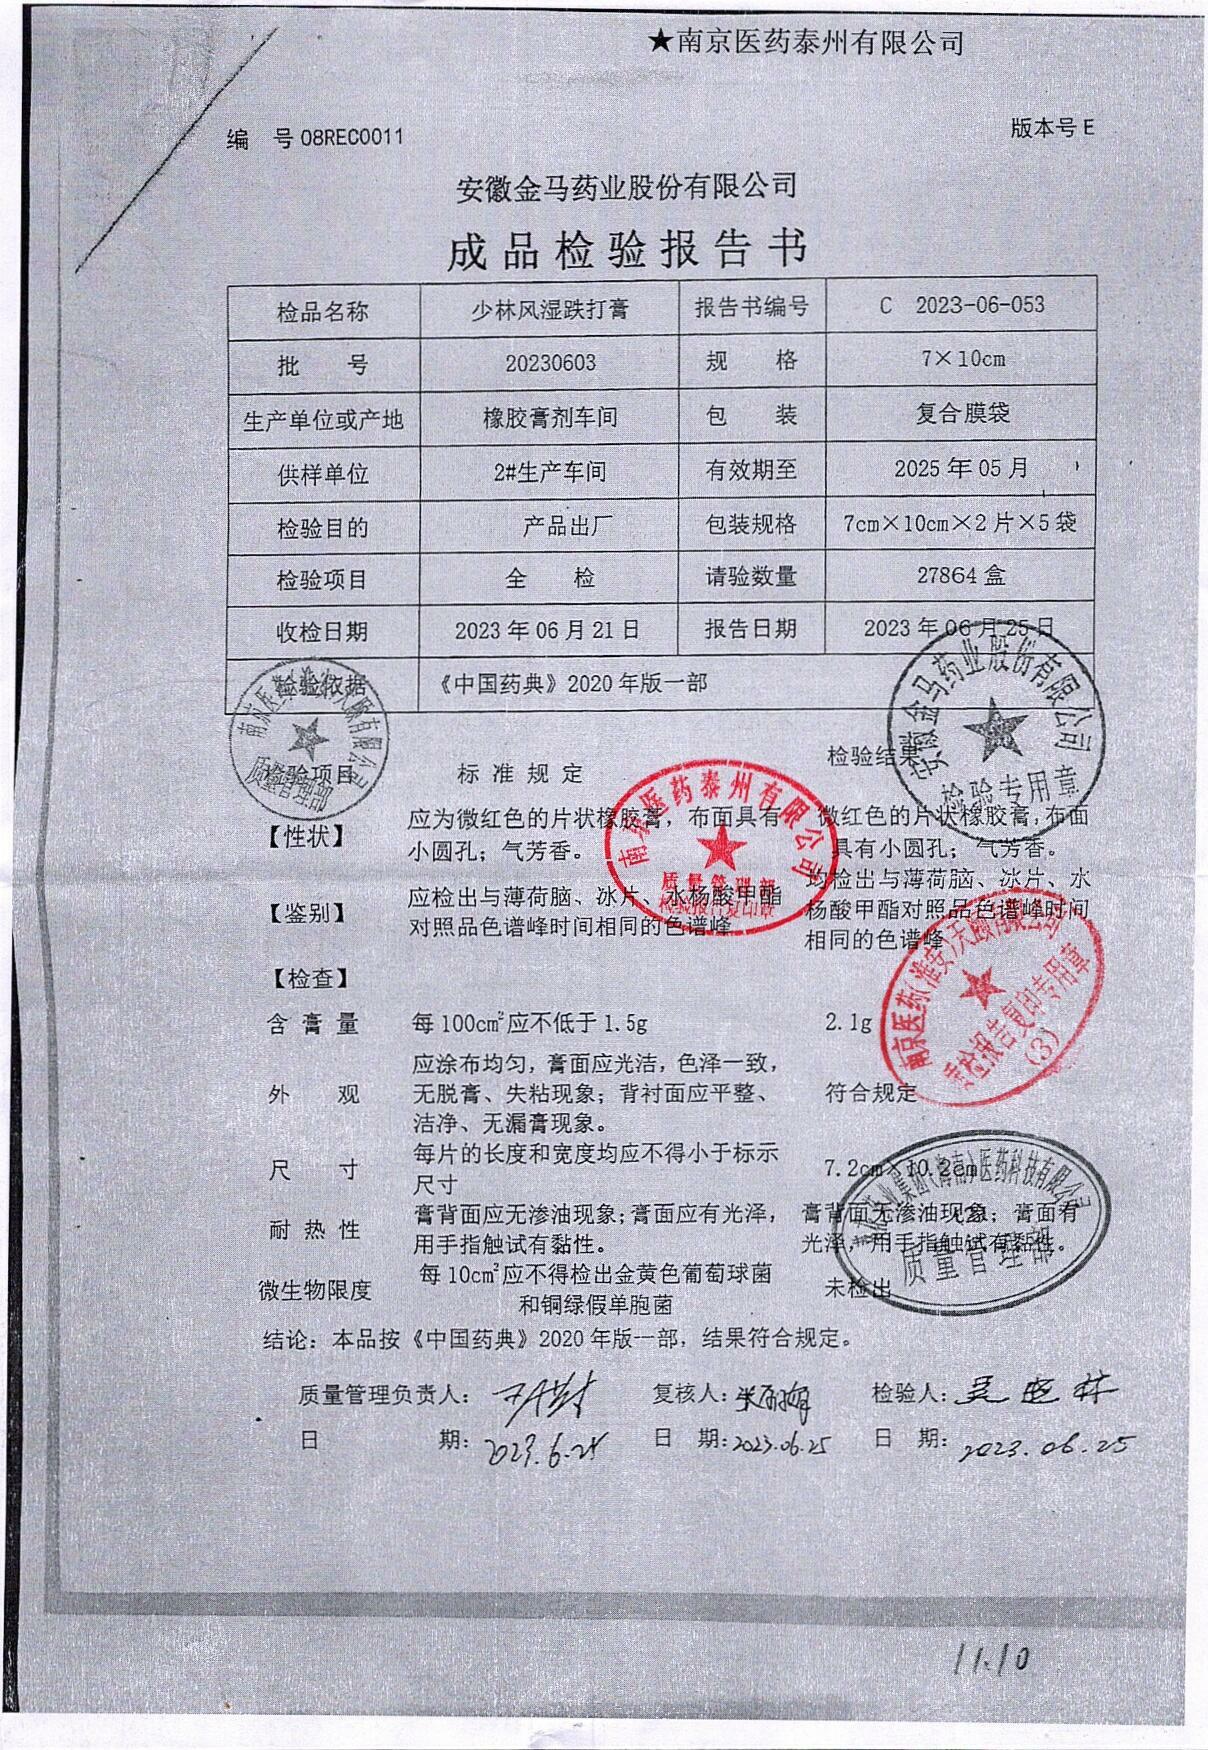 ★南京医药泰州有限公司
编 号 08REC0011
版本号 E
安徽金马药业股份有限公司
成品检验报告书
检品名称 少林风湿跌打膏 报告书编号 C 2023-06-053
批 号 20230603 规 格 7×10cm
生产单位或产地 橡胶膏剂车间 包 装 复合膜袋
供样单位 2#生产车间 有效期至 2025 年 05 月
检验目的 产品出厂 包装规格 7cm×10cm×2 片×5 袋
检验项目 全 检 请验数量 27864 盒
收检日期 2023 年 06 月 21 日 报告日期 2023 年 06 月 25 日
检验依据 《中国药典》2020 年版一部
检验项目 标 准 规 定 检验结果
【性状】
应为微红色的片状橡胶膏，布面具有
小圆孔；气芳香。
微红色的片状橡胶膏，布面
具有小圆孔；气芳香。
【鉴别】
应检出与薄荷脑、冰片、水杨酸甲酯
对照品色谱峰时间相同的色谱峰
均检出与薄荷脑、冰片、水
杨酸甲酯对照品色谱峰时间
相同的色谱峰
【检查】
含 膏 量 每 100cm²应不低于 1.5g 2.1g
外 观
应涂布均匀，膏面应光洁，色泽一致，
无脱膏、失粘现象；背衬面应平整、
洁净、无漏膏现象。
符合规定
尺 寸
每片的长度和宽度均应不得小于标示
尺寸
7.2cm×10.2cm
耐 热 性
膏背面应无渗油现象；膏面应有光泽，
用手指触试有黏性。
膏背面无渗油现象；膏面有
光泽，用手指触试有黏性。
微生物限度
每 10cm²应不得检出金黄色葡萄球菌
和铜绿假单胞菌
未检出
结论：本品按《中国药典》2020 年版一部，结果符合规定。
质量管理负责人： 复核人： 检验人：
日 期：2023.6.25 日 期：2023.06.25 日 期：2023.06.25
安徽金马药业股份有限公司
检验专用章
南京医药泰州有限公司
质量管理部
检验报告复印章
南京医药(淮安)天颐有限公司
质检报告复印专用章
(3)
质量管理部
质量管理部
11.10